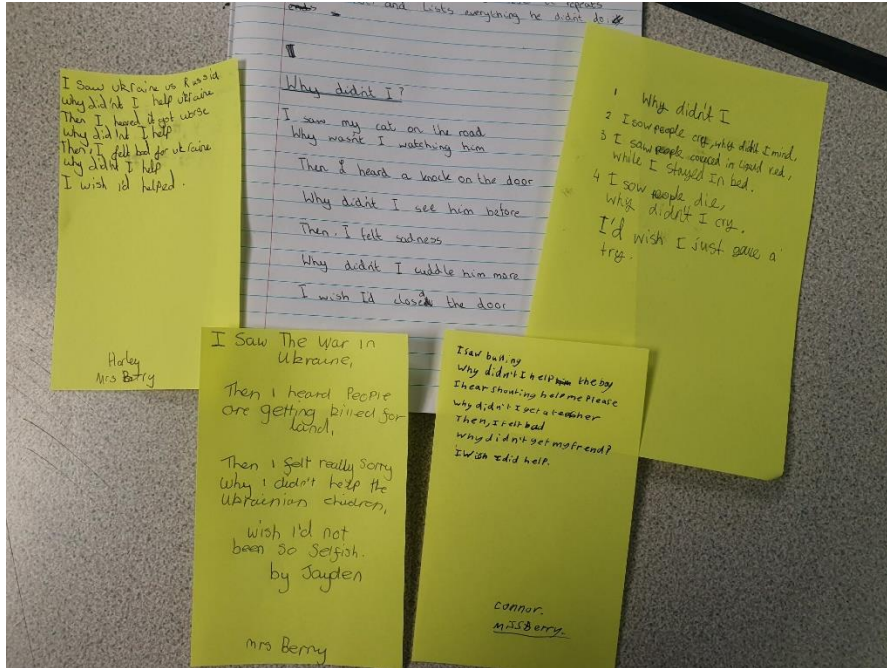 and lists everything he didn't do.
Why didn't I?
I saw my cat on the road
Why wasn't I watching him
Then I heard a knock on the door
Why didn't I see him before
Then, I felt sadness
Why didn't I cuddle him more
I wish I'd closed the door
I Saw ukraine vs Russia
why did'nt I help ukraine
Then I heared it got worse
why did'nt I help
Then, I felt bad for ukraine
why did'nt I help
I wish i'd helped.
Harley
Mrs Berry
1 Why didn't I
2 I sow people cry, why didn't I mind,
3 I saw people covered in liquid red,
while I stayed In bed.
4 I sow people die,
why didn't I cry.
I'd wish I just gave a
try.
I Saw The War in
Ukraine,
Then I heard People
are getting killed for
land,
Then I felt really sorry
why I didn't help the
Ukrainian
wish I'd not
been so selfish.
by Jayden
mrs Berry
I saw bulling
Why didn't I help the boy
I hear shouting help me Please
why didn't I get a teacher
Then, I felt bad
why did n't get my frend?
I Wish I did help.
Connor.
MrSBerry.